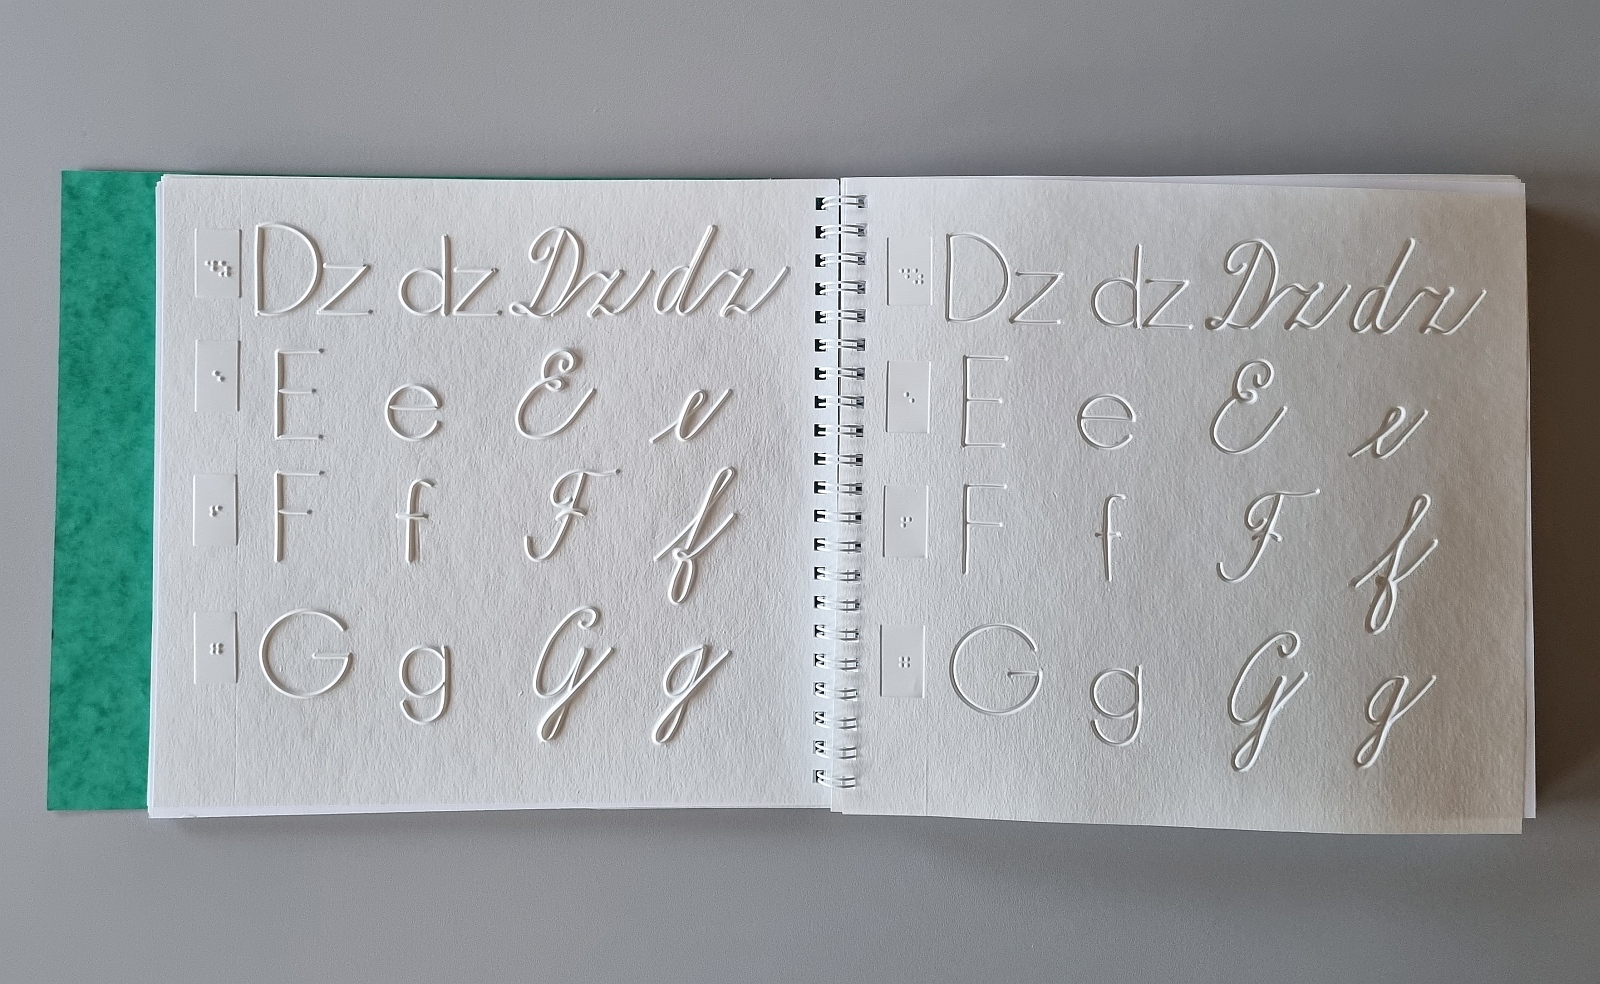 Dz dz Dz dz
E e E e
F f F f
G g G g
Dz dz Dz dz
E e E e
F f F f
G g G g